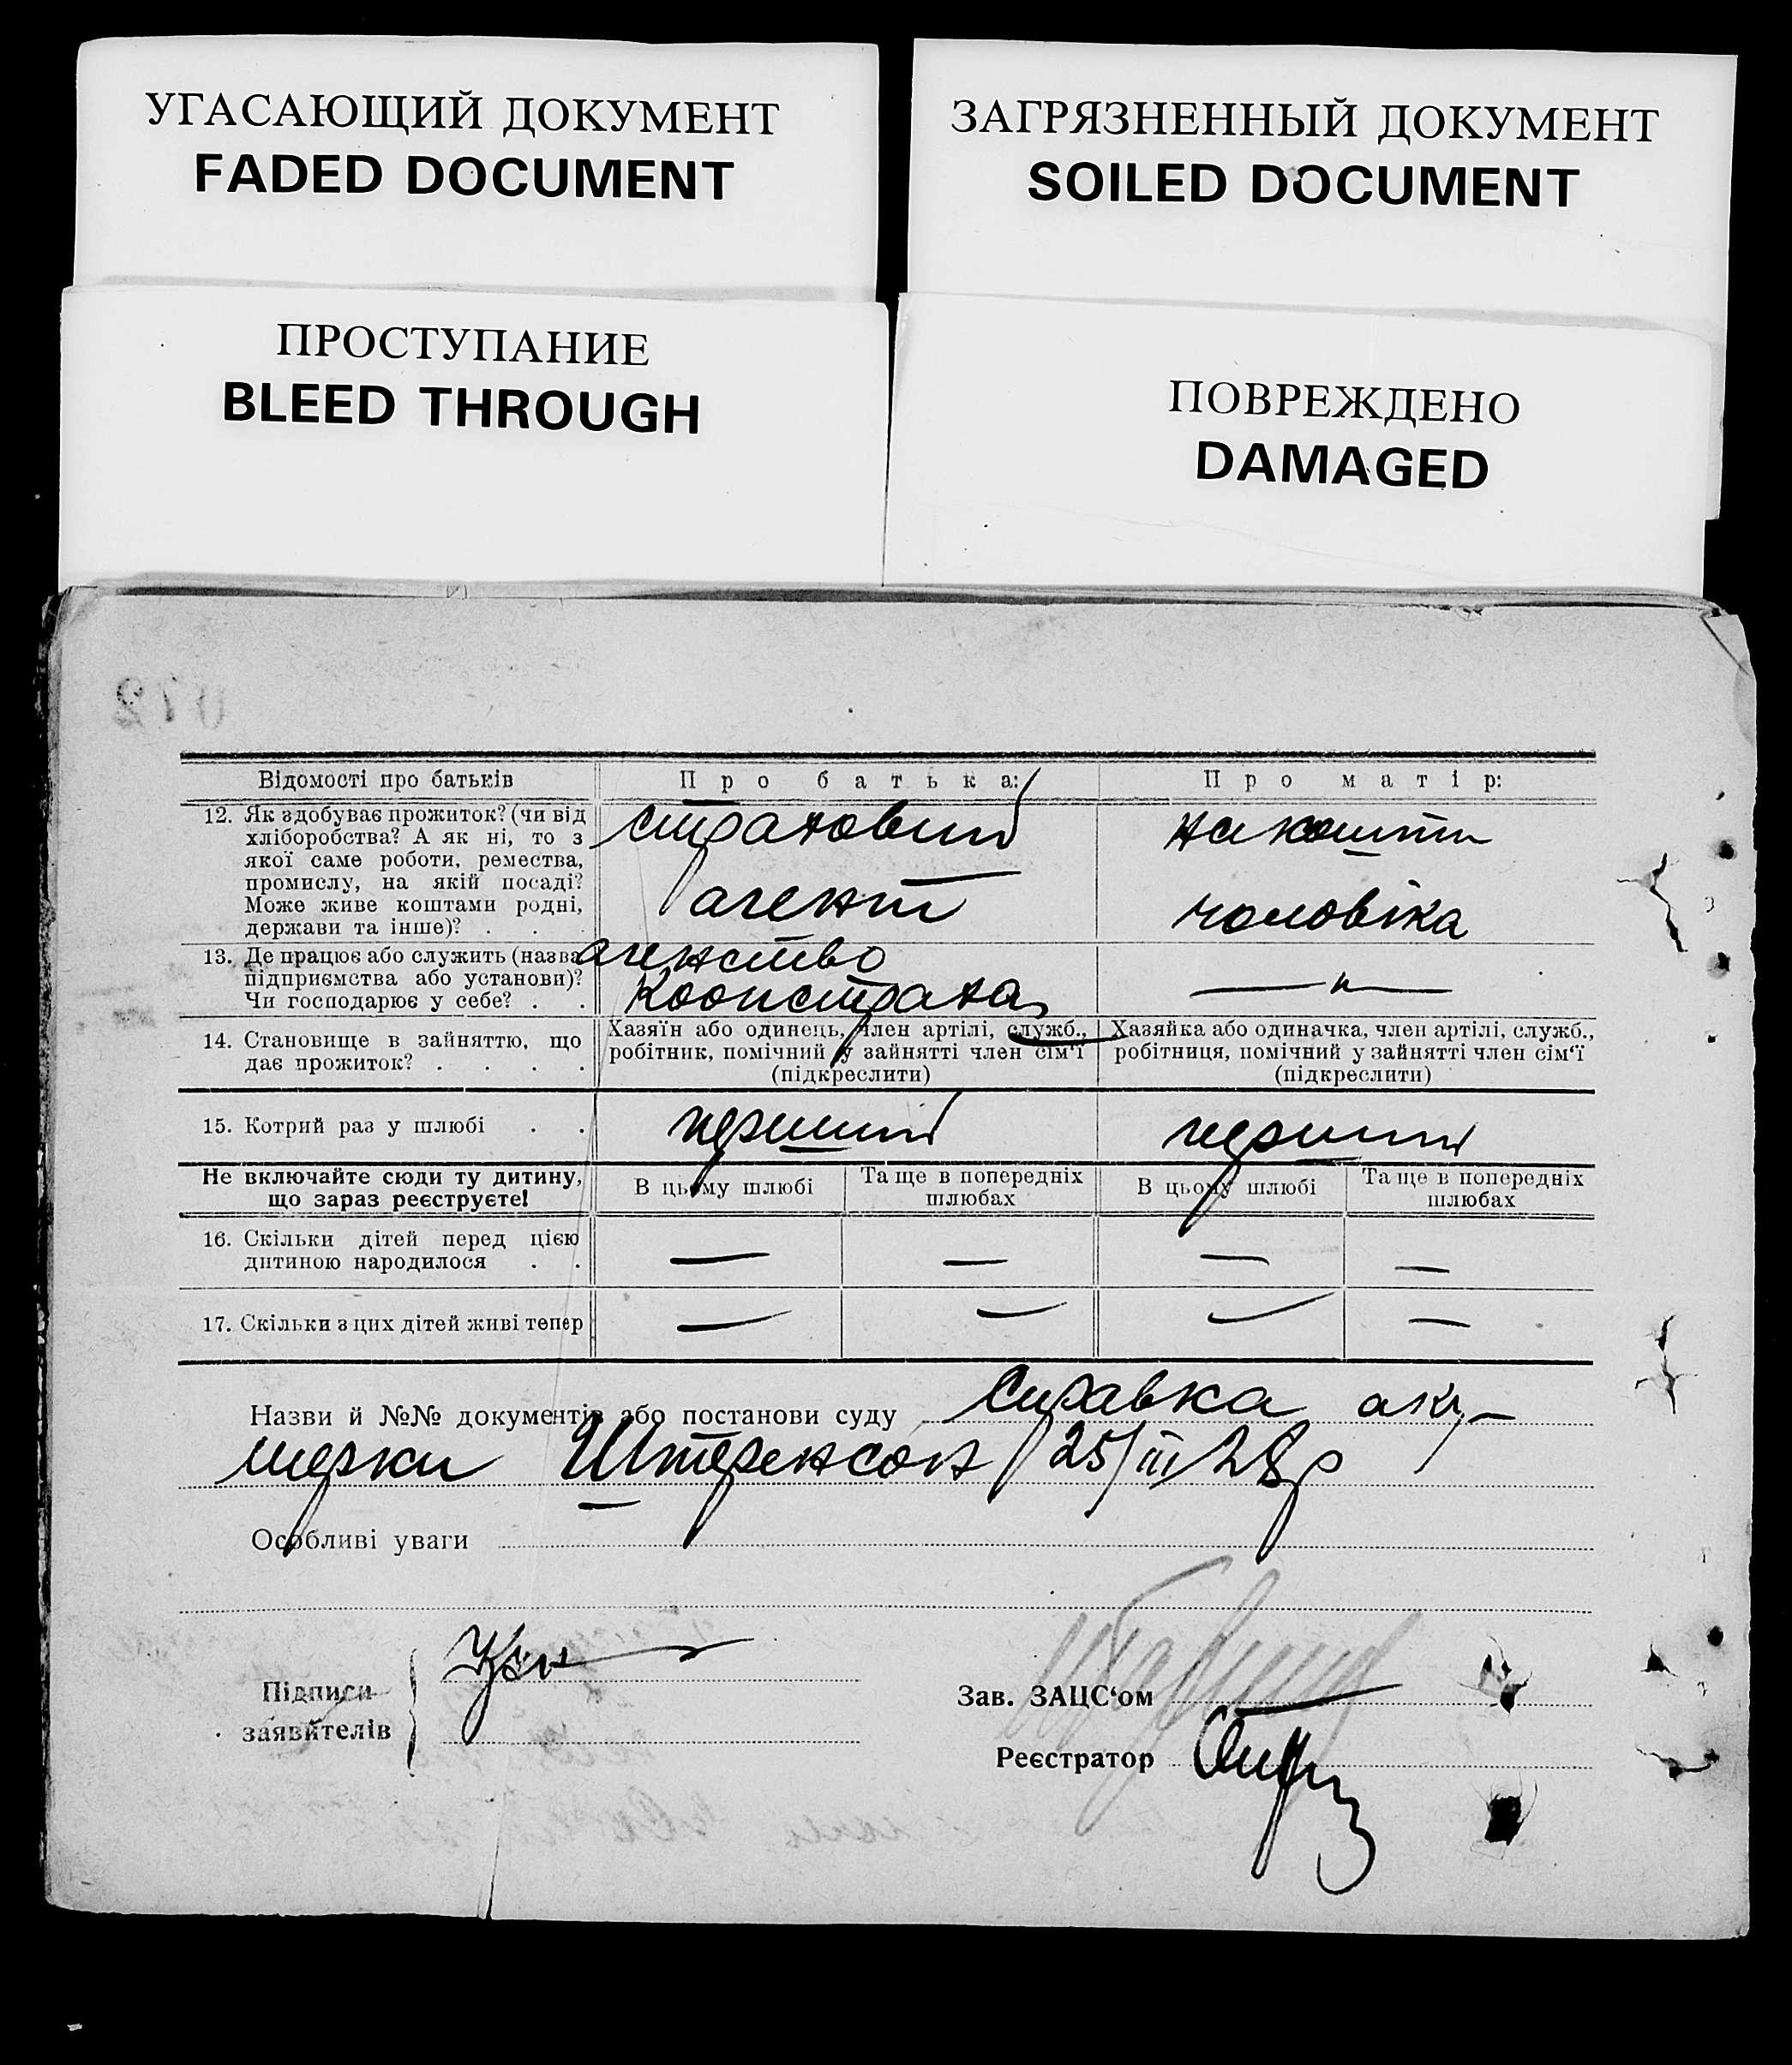 УГАСАЮЩИЙ ДОКУМЕНТ
FADED DOCUMENT
ЗАГРЯЗНЕННЫЙ ДОКУМЕНТ
SOILED DOCUMENT
ПРОСТУПАНИЕ
BLEED THROUGH
ПОВРЕЖДЕНО
DAMAGED
Відомості про батьків
Про батька:
Про матір:
12. Як здобуває прожиток? (чи від
хліборобства? А як ні, то з
якої саме роботи, ремества,
промислу, на якій посаді?
Може живе коштами родні,
держави та інше)? . . .
страховий
агент
на кошти
чоловіка
13. Де працює або служить (назва
підприємства або установи)?
Чи господарює у себе? . .
агенство
Коопстраха
— " —
14. Становище в зайняттю, що
дає прожиток? . . . .
Хазяїн або одинець, член артілі, служб.,
робітник, помічний у зайнятті член сім'ї
(підкреслити)
Хазяйка або одиначка, член артілі, служб.,
робітниця, помічний у зайнятті член сім'ї
(підкреслити)
15. Котрий раз у шлюбі . .
перший
перший
Не включайте сюди ту дитину,
що зараз реєструєте!
В цьому шлюбі
Та ще в попередніх
шлюбах
В цьому шлюбі
Та ще в попередніх
шлюбах
16. Скільки дітей перед цією
дитиною народилося . .
— — — —
17. Скільки з цих дітей живі тепер
— — — —
Назви й №№ документів або постанови суду Справка аку-
шерки Штеренсон 25/III 28 р
Особливі уваги
Підписи
заявителів
Зав. ЗАЦС'ом
Реєстратор